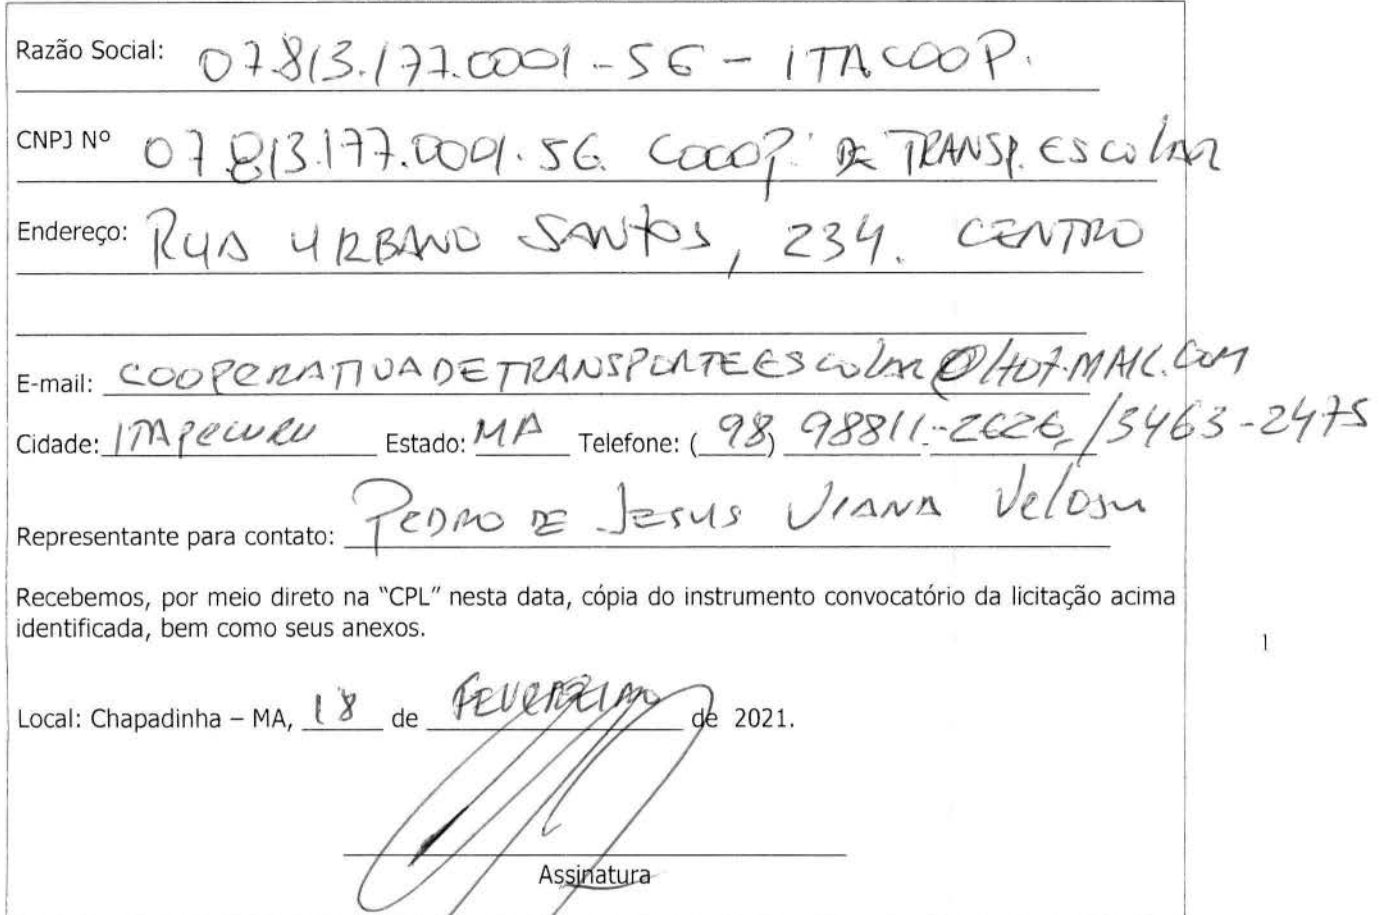 Razão Social: 07.813.177.0001-56 - ITACOOP.
CNPJ Nº 07.813.177.0001.56. COOOP. DE TRANSP. ESCOLAR
Endereço: RUA URBANO SANTOS, 234. CENTRO
E-mail: COOPERATIVADETRANSPORTEESCOLAR@HOTMAIL.COM
Cidade: ITAPECURU Estado: MA Telefone: (98) 98811-2626 /3463-2475
Representante para contato: PEDRO DE JESUS VIANA Veloso
Recebemos, por meio direto na "CPL" nesta data, cópia do instrumento convocatório da licitação acima
identificada, bem como seus anexos.
1
Local: Chapadinha – MA, 18 de FEVEREIRO de 2021.
Assinatura